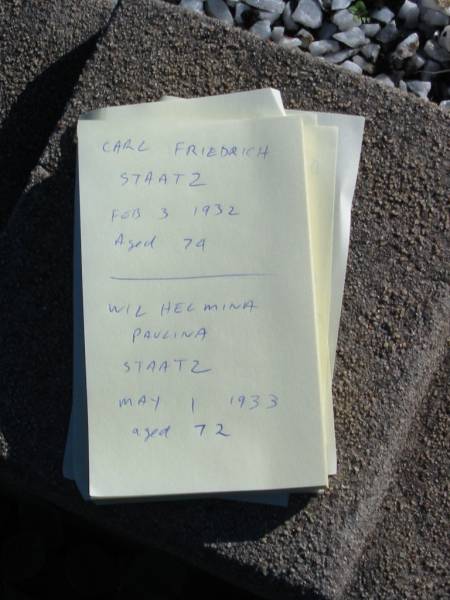 CARL FRIEDRICH
STAATZ
FEB 3 1932
Aged 74
WILHELMINA
PAULINA
STAATZ
MAY 1 1933
aged 72